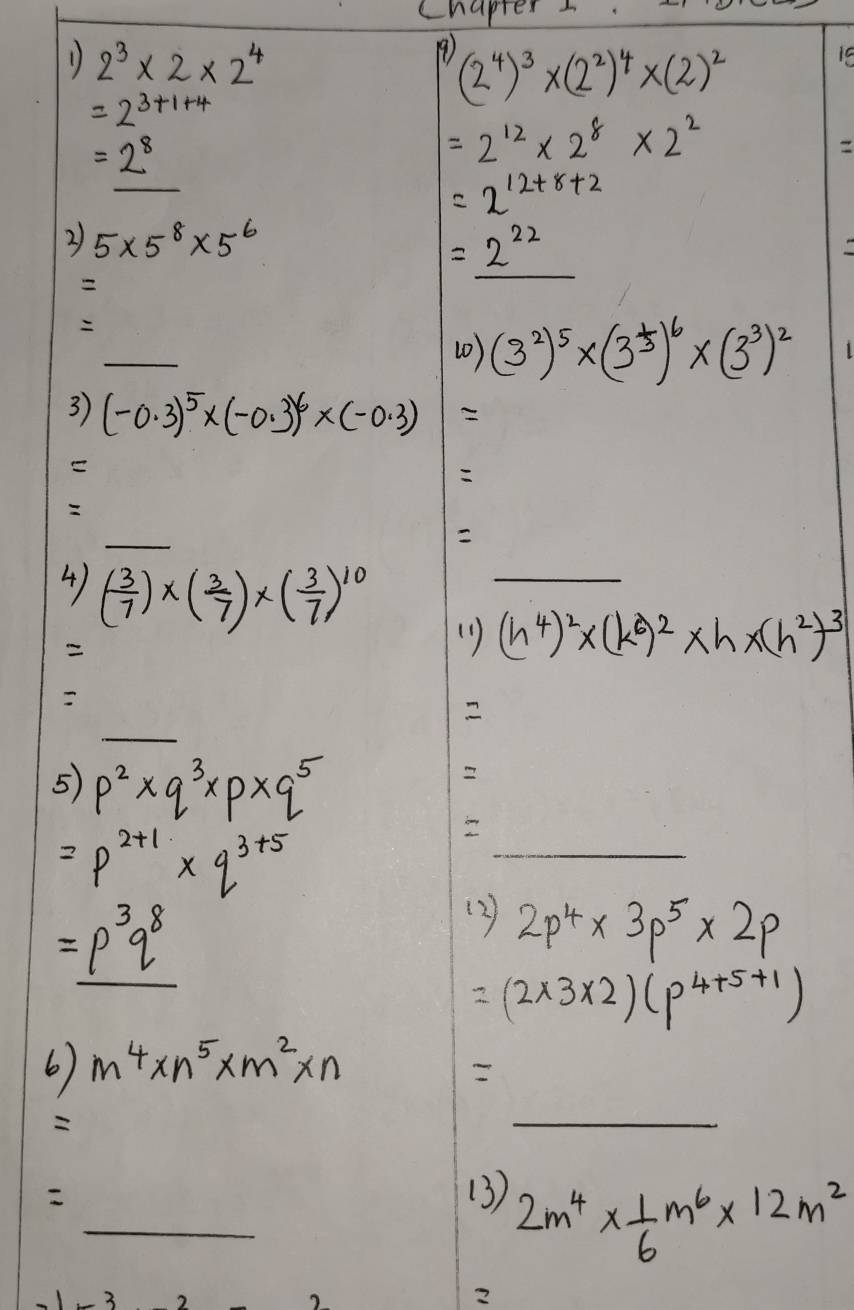 Chapter 1 :
1) 2³ × 2 × 2⁴
= 2³⁺¹⁺⁴
= 2⁸
2) 5 × 5⁸ × 5⁶
=
=
3) (-0.3)⁵ × (-0.3)⁶ × (-0.3)
=
=
4) (3/7) × (3/7) × (3/7)¹⁰
=
=
5) p² × q³ × p × q⁵
= p²⁺¹ × q³⁺⁵
= p³q⁸
6) m⁴ × n⁵ × m² × n
=
=
9) (2⁴)³ × (2²)⁴ × (2)²
= 2¹² × 2⁸ × 2²
= 2¹²⁺⁸⁺²
= 2²²
10) (3²)⁵ × (3^(1/3))⁶ × (3³)²
=
=
=
11) (h⁴)² × (k⁶)² × h × (h²)³
=
=
=
12) 2p⁴ × 3p⁵ × 2p
= (2×3×2)(p⁴⁺⁵⁺¹)
=
13) 2m⁴ × 1/6 m⁶ × 12m²
=
15
=
=